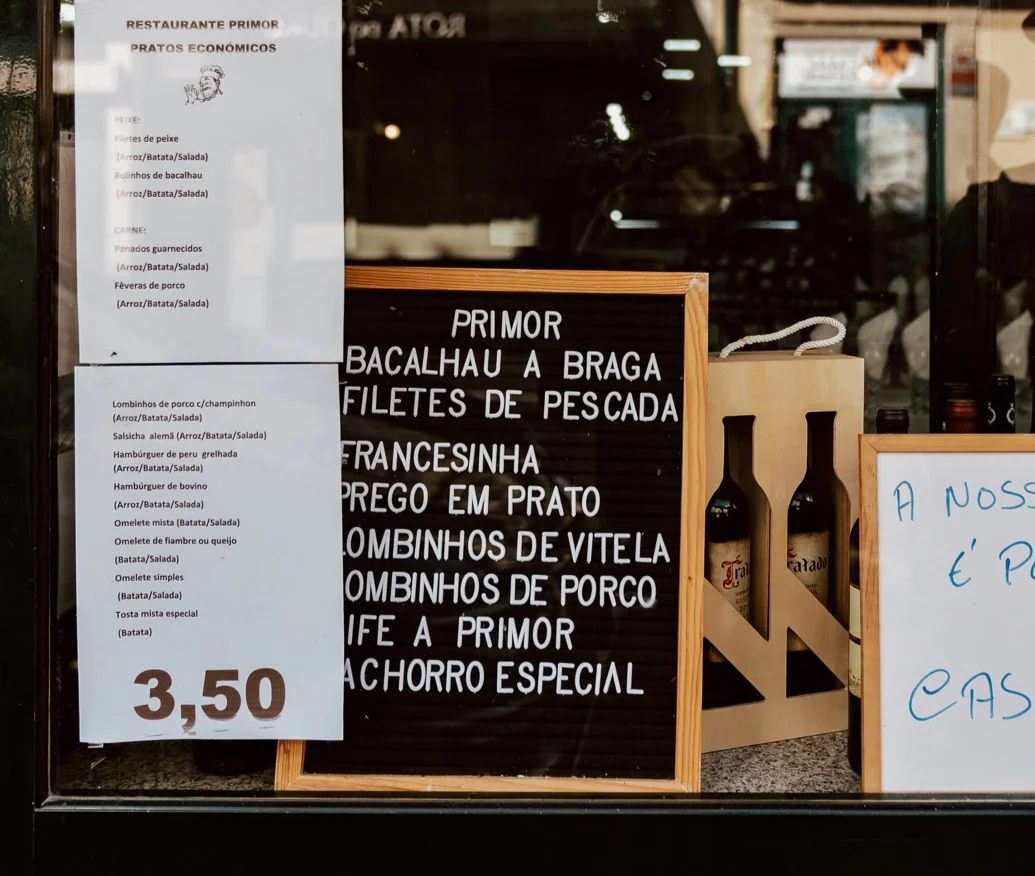 RESTAURANTE PRIMOR
PRATOS ECONÓMICOS
PEIXE:
Filetes de peixe
(Arroz/Batata/Salada)
Bolinhos de bacalhau
(Arroz/Batata/Salada)
CARNE:
Panados guarnecidos
(Arroz/Batata/Salada)
Fêveras de porco
(Arroz/Batata/Salada)
Lombinhos de porco c/champinhon
(Arroz/Batata/Salada)
Salsicha alemã (Arroz/Batata/Salada)
Hambúrguer de peru grelhada
(Arroz/Batata/Salada)
Hambúrguer de bovino
(Arroz/Batata/Salada)
Omelete mista (Batata/Salada)
Omelete de fiambre ou queijo
(Batata/Salada)
Omelete simples
(Batata/Salada)
Tosta mista especial
(Batata)
3,50
PRIMOR
BACALHAU A BRAGA
FILETES DE PESCADA
FRANCESINHA
PREGO EM PRATO
LOMBINHOS DE VITELA
OMBINHOS DE PORCO
IFE A PRIMOR
ACHORRO ESPECIAL
Tratado
A NOSS
É PO
CAS